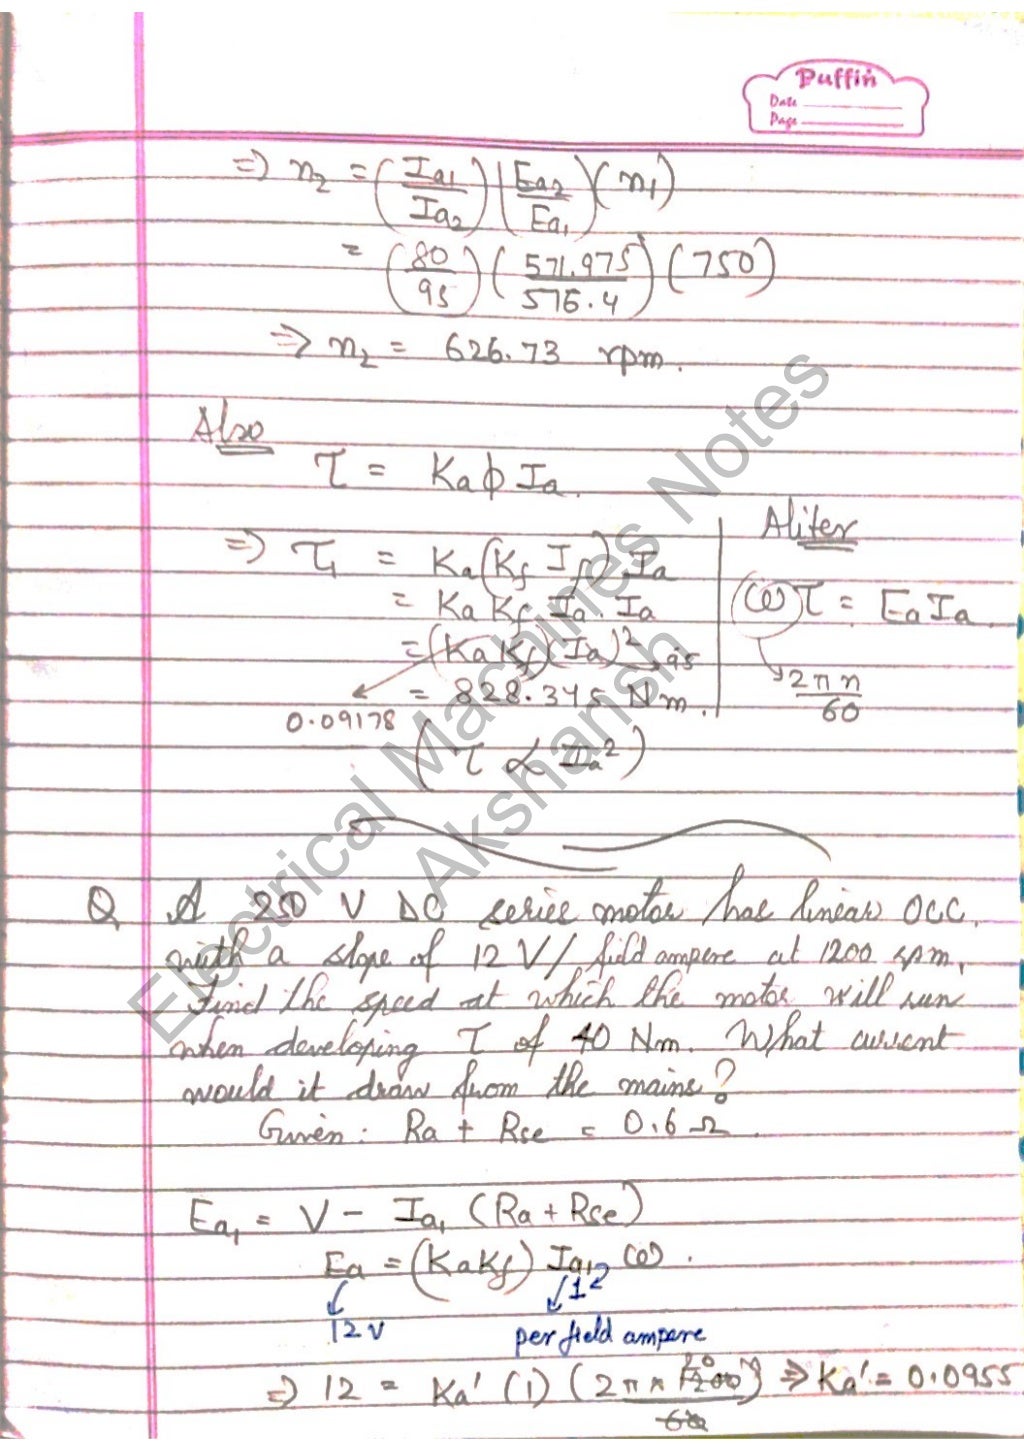 Puffin
Date
Page
=) n₂ = (Ia₁/Ia₂) (Ea₂/Ea₁) (n₁)
= (80/95) (571.975/576.4) (750)
=> n₂ = 626.73 rpm.
Also
τ = Ka φ Ia.
=) τ₁ = Ka (Kf If) Ia
= Ka Kf Ia. Ia
= (Ka Kf) (Ia)² → 95
= 828.345 Nm.
0.09178
(τ ∝ Ia²)
Aliter
ω τ = Ea Ia.
2πn/60
Q A 250 V DC series motor has linear OCC,
with a slope of 12 V/ field ampere at 1200 rpm,
Find the speed at which the motor will run
when developing τ of 40 Nm. What current
would it draw from the mains?
Given: Ra + Rse = 0.6 Ω.
Ea₁ = V - Ia₁ (Ra + Rse)
Ea = (KaKf) Ia₁ ω.
12V
1
per field ampere
=) 12 = Ka' (1) (2π x 1200/60) => Ka' = 0.0955
20
Electrical Machines Notes
Akshansh